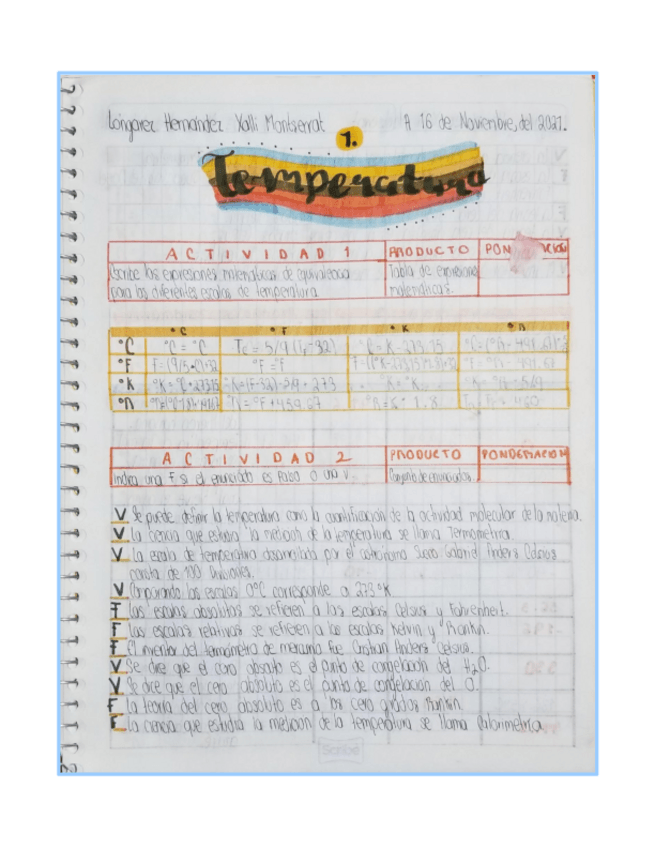 Longarez Hernandez Xalli Montserrat A 16 de Noviembre, del 2021.
1.
Temperatura
ACTIVIDAD 1 PRODUCTO
Escribe las expresiones matematicas de equivalencia Tabla de expresiones
para las diferentes escalas de temperatura. matematicas.
°C °F °K °R
°C °C = °C Tc = 5/9 (TF-32) °C = K - 273.15
°F °F = °F
°K °K = °C + 273.15 °K = °K
°R °R = °F + 459.67 °R = K * 1.8
ACTIVIDAD 2 PRODUCTO PONDERACION
Indica una F si el enunciado es falso o una V Conjunto de enunciados.
V Se puede definir la temperatura como la cuantificación de la actividad molecular de la materia.
V La ciencia que estudia la medicion de la temperatura se llama Termometria.
V La escala de temperatura desarrollada por el astronomo Sueco Gabriel Anders Celsius
consta de 100 Divisiones.
V Comparando las escalas 0°C corresponde a 273°K
F Las escalas absolutas se refieren a las escalas Celsius y Fahrenheit.
F Las escalas relativas se refieren a las escalas Kelvin y Rankin.
F El inventor del termometro de mercurio fue Cristian Anders Celsius.
V Se dice que el cero absoluto es el punto de congelacion del H2O.
V Se dice que el cero absoluto es el punto de congelacion del O.
F La teoria del cero absoluto es a los cero grados Rankin.
F La ciencia que estudia la medicion de la temperatura se llama Calorimetrica
Scribe